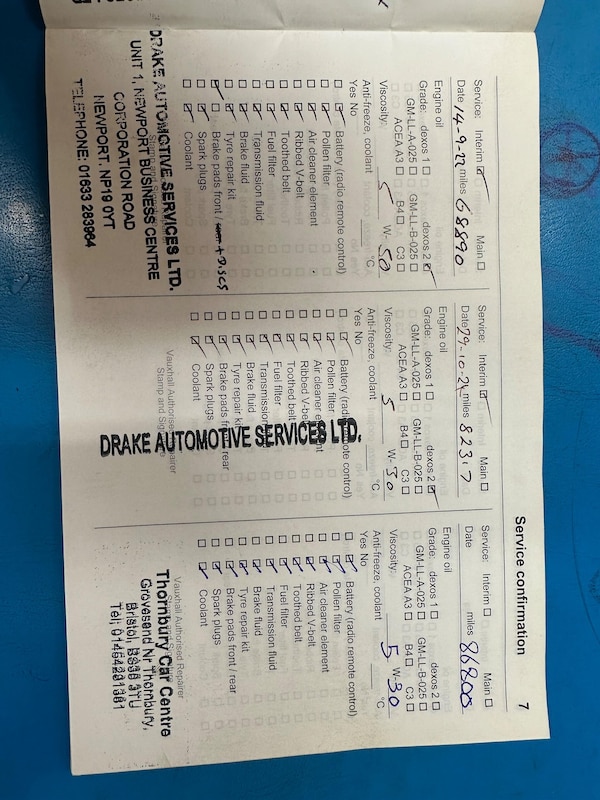 Service confirmation
7
Service: Interim Main
Date 14-9-22 miles 68890
Engine oil
Grade: dexos 1 dexos 2
GM-LL-A-025 GM-LL-B-025
ACEA A3 B4 C3
Viscosity: 5 W- 30
Anti-freeze, coolant °C
Yes No
Battery (radio remote control)
Pollen filter
Air cleaner element
Ribbed V-belt
Toothed belt
Fuel filter
Transmission fluid
Brake fluid
Tyre repair kit
Brake pads front / + DISCS
Spark plugs
Coolant
DRAKE AUTOMOTIVE SERVICES LTD.
UNIT 1, NEWPORT BUSINESS CENTRE
CORPORATION ROAD
NEWPORT. NP19 0YT
TELEPHONE: 01633 283964
Service: Interim Main
Date 29-10-24 miles 82317
Engine oil
Grade: dexos 1 dexos 2
GM-LL-A-025 GM-LL-B-025
ACEA A3 B4 C3
Viscosity: 5 W- 30
Anti-freeze, coolant °C
Yes No
Battery (radio remote control)
Pollen filter
Air cleaner element
Ribbed V-belt
Toothed belt
Fuel filter
Transmission
Brake fluid
Tyre repair kit
Brake pads front / rear
Spark plugs
Coolant
DRAKE AUTOMOTIVE SERVICES LTD.
Vauxhall Authorised Repairer
Stamp and
Service: Interim Main
Date miles 86805
Engine oil
Grade: dexos 1 dexos 2
GM-LL-A-025 GM-LL-B-025
ACEA A3 B4 C3
Viscosity: 5 W-30
Anti-freeze, coolant °C
Yes No
Battery (radio remote control)
Pollen filter
Air cleaner element
Ribbed V-belt
Toothed belt
Fuel filter
Transmission fluid
Brake fluid
Tyre repair kit
Brake pads front / rear
Spark plugs
Coolant
Vauxhall Authorised Repairer
Thornbury Car Centre
Grovesend Nr Thornbury,
Bristol,
Tel;